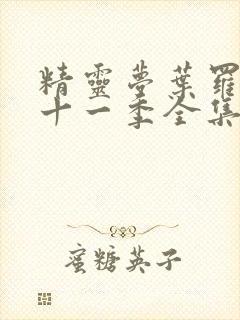 精靈夢葉羅
十一季全集
蜜糖英子